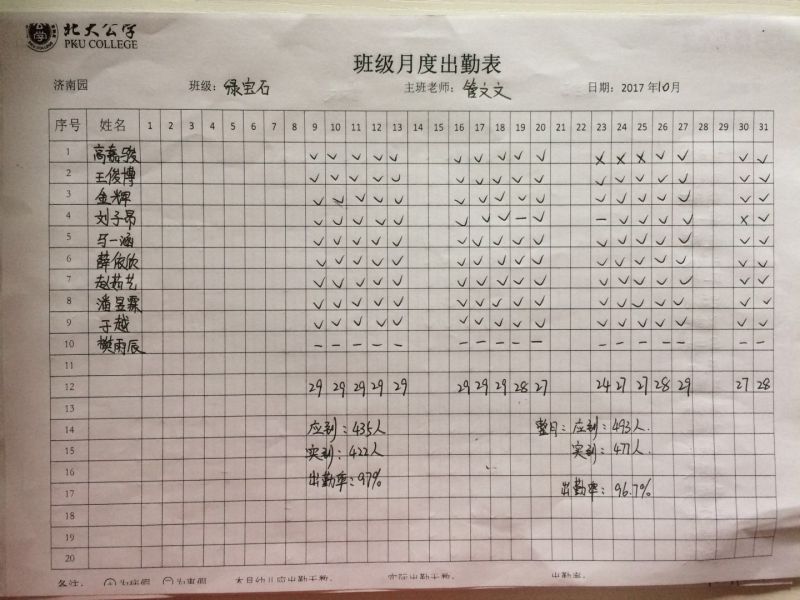 北大公学
PKU COLLEGE
班级月度出勤表
济南园 班级: 绿宝石 主班老师: 管文文 日期: 2017 年10月
序号 姓名 1 2 3 4 5 6 7 8 9 10 11 12 13 14 15 16 17 18 19 20 21 22 23 24 25 26 27 28 29 30 31
1 高嘉骏 ✓ ✓ ✓ ✓ ✓ ✓ ✓ ✓ ✓ ✓ × × × ✓ ✓ ✓ ✓
2 王俊博 ✓ ✓ ✓ ✓ ✓ ✓ ✓ ✓ ✓ ✓ ✓ ✓ ✓ ✓ ✓ ✓ ✓
3 金辉 ✓ ✓ ✓ ✓ ✓ ✓ ✓ ✓ ✓ ✓ ✓ ✓ ✓ ✓ ✓ ✓ ✓
4 刘子昂 ✓ ✓ ✓ ✓ ✓ ✓ ✓ ✓ — ✓ — ✓ ✓ ✓ ✓ × ✓
5 马一涵 ✓ ✓ ✓ ✓ ✓ ✓ ✓ ✓ ✓ ✓ ✓ ✓ ✓ ✓ ✓ ✓ ✓
6 薛依欣 ✓ ✓ ✓ ✓ ✓ ✓ ✓ ✓ ✓ ✓ ✓ ✓ ✓ ✓ ✓ ✓ ✓
7 赵茹艺 ✓ ✓ ✓ ✓ ✓ ✓ ✓ ✓ ✓ ✓ ✓ ✓ ✓ ✓ ✓ ✓ ✓
8 潘昱霖 ✓ ✓ ✓ ✓ ✓ ✓ ✓ ✓ ✓ ✓ ✓ ✓ ✓ ✓ ✓ ✓ ✓
9 于越 ✓ ✓ ✓ ✓ ✓ ✓ ✓ ✓ ✓ ✓ ✓ ✓ ✓ ✓ ✓ ✓ ✓
10 樊雨辰 — — — — — — — — — — — — — — — — —
11
12 29 29 29 29 29 29 29 29 28 27 24 27 27 28 29 27 28
13
14 应到: 435人 整月: 应到: 493人.
15 实到: 422人 实到: 477人.
16 出勤率: 97%
17 出勤率: 96.7%
18
19
20
备注: 为病假 为事假 本月幼儿应出勤天数: 实际出勤天数: 出勤率: